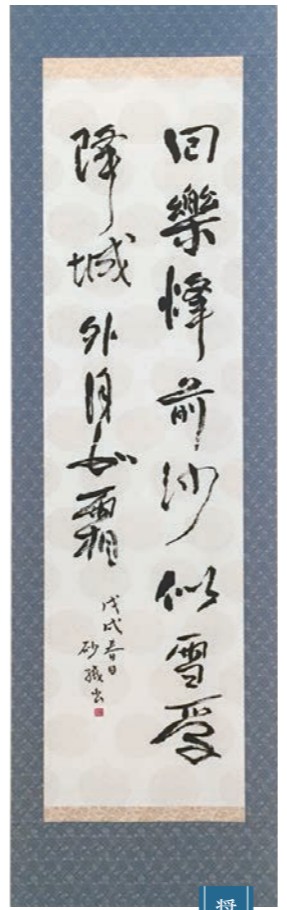 回樂烽前沙似雪受
降城外月如霜
戊戌春日
砂
将